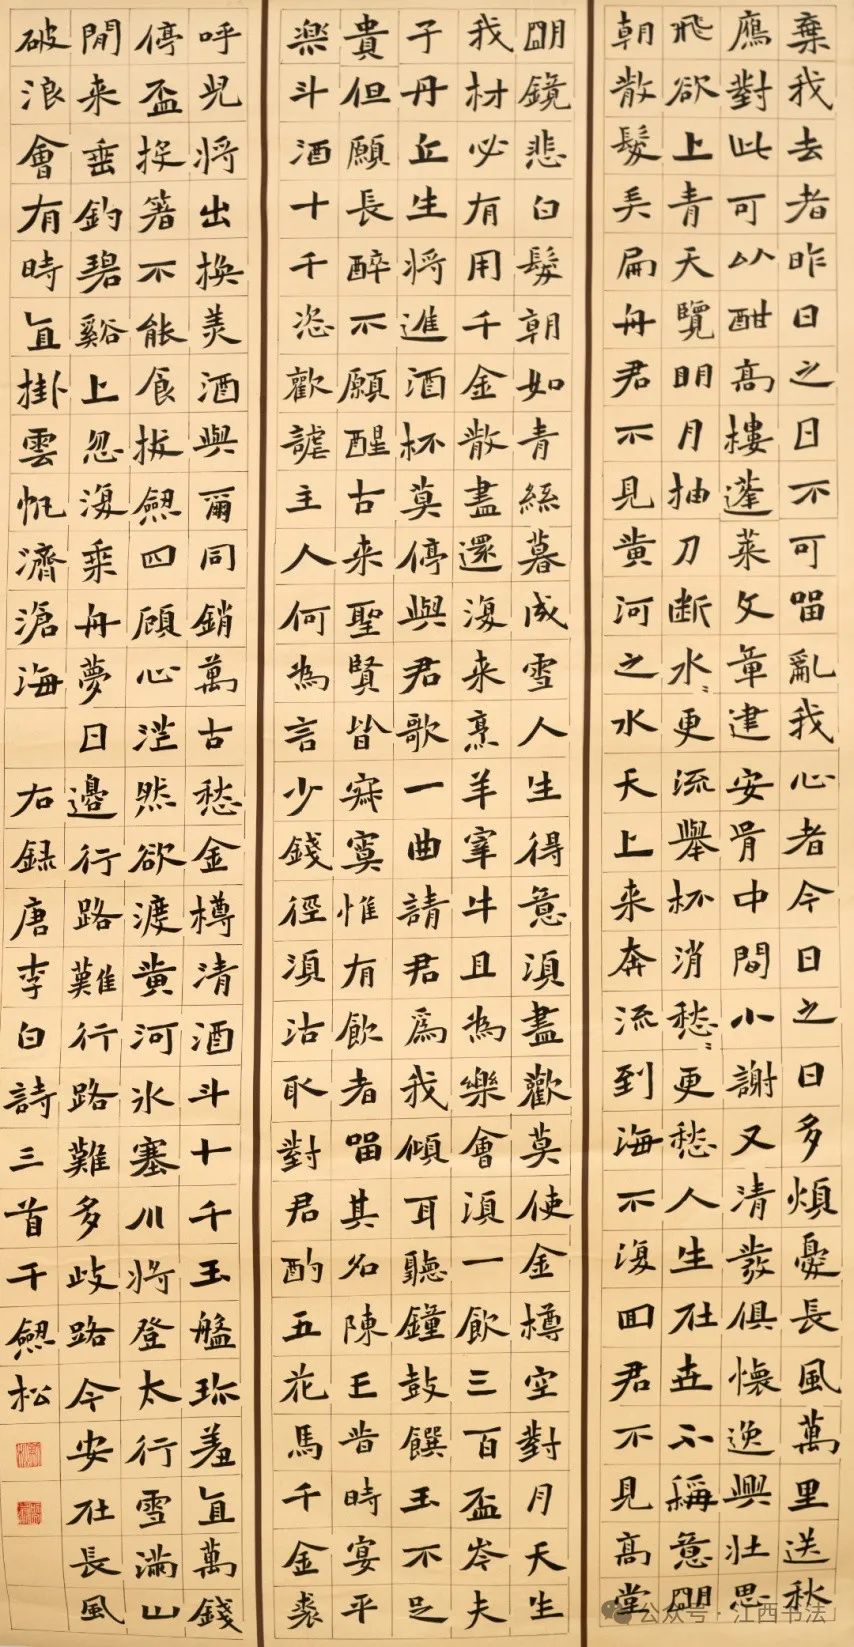 棄我去者昨日之日不可留亂我心者今日之日多煩憂長風萬里送秋
鴈對此可以酣高樓蓬萊文章建安骨中間小謝又清發俱懷逸興壯思
飛欲上青天覽明月抽刀断水〻更流舉杯消愁〻更愁人生在世不稱意明
朝散髮弄扁舟君不見黃河之水天上来奔流到海不復回君不見高堂
明鏡悲白髮朝如青絲暮成雪人生得意須盡歡莫使金樽空對月天生
我材必有用千金散盡還復来烹羊宰牛且為樂會須一飲三百盃岑夫
子丹丘生将進酒杯莫停與君歌一曲請君爲我傾耳聽鐘鼓饌玉不足
貴但願長醉不願醒古来聖賢皆寂寞惟有飲者留其名陳王昔時宴平
楽斗酒十千恣歡謔主人何為言少錢徑須沽取對君酌五花馬千金裘
呼児将出換美酒與爾同銷萬古愁金樽清酒斗十千玉盤珎羞直萬錢
停盃投箸不能食拔劍四顧心茫然欲渡黃河氷塞川将登太行雪滿山
閒来垂釣碧谿上忽復乗舟夢日邊行路難行路難多歧路今安在長風
破浪會有時直掛雲帆濟滄海
右録唐李白詩三首千劍松
公众号·江西书法